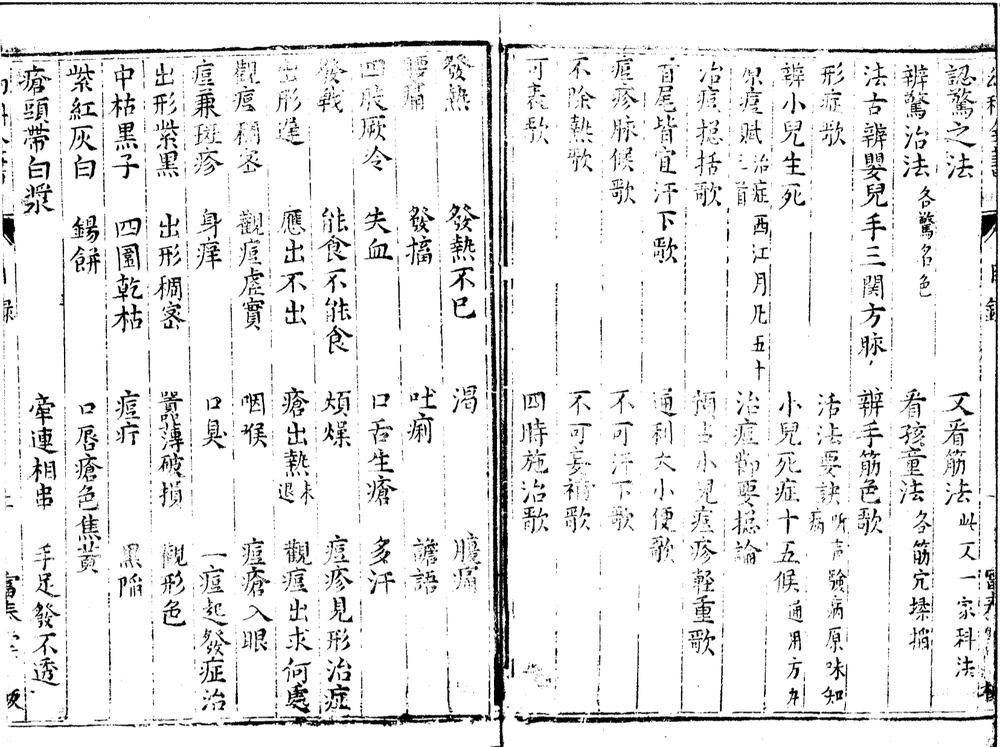 認驚之法　又看筋法此又一家科法
辨驚治法各驚名色　看孩童法各筋穴揉掐
法古辨嬰兒手三関方脉　辨手筋色歌
形症歌　活法要訣听声驗病原味知病
辨小兒生死　小兒死症十五候通用方
痘賦治症西江月凡五十首　治痘節要捴論
治痘捴括歌　小兒痘疹軽重歌
首尾皆宜汗下歌　通利大小便歌
痘疹脉候歌　不可汗下歌
不除熱歌　不可妄補歌
可表歌　四時施治歌
發熱　發熱不已　渴　腹痛
腰痛　發搐　吐痢　譫語
四肢厥冷　失血　口舌生瘡　多汗
發戰　能食不能食　煩燥　痘疹見形治症
出形遲　應出不出　瘡出熱未退　觀痘出求何處
觀痘稠密　觀痘虛實　咽喉　痘瘡入眼
痘兼斑疹　身痒　口臭　一痘起發症治
出形紫黑　出形稠密　嚢薄破損　觀形色
中枯黑子　四圍乾枯　痘疔　黑陷
紫紅灰白　錫餅　口唇瘡色焦黄
瘡頭帶白漿　牽連相串　手足發不透